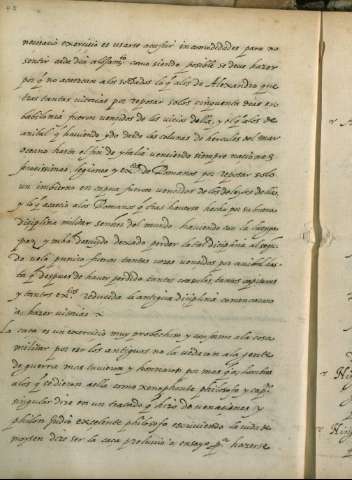 necesario exercicio es usarse a sufrir incomodidades para no
sentir cada dia como siendo posible se deve hazer
por q̃ no acaezcan a los soldados lo q̃ a los de Alexandro que
tras tantas victorias por reposar solos cinquenta dias en
babilonia fueron vencidos de los vicios della, y el q̃ a los de
anibal q̃ haviendo ydo desde las colunas de hercules del mar
oceano hasta el fin de ytalia venciendo siempre naciones
provincias, legiones y ex.tos de Romanos por reposar solo
un imbierno en capua fueron vencidos de los deleytes della
y lo q̃ acaecio a los Romanos q̃ tras haverse hecho por su buena
diciplina militar señores del mundo haviendo con la larga
paz y mucho descuydo dexado perder la diciplina
fueron tantas vezes vencidos por anibal has
ta q̃ despues de haver perdido tantos consules, tantos capitanes
y tantos ex.tos reducida la antigua diciplina comencaron
a hazer
La caca es un exercicio muy provechoso y a las cosas
militar por esto los antiguos no la vedavan a la gente
de guerra mas tuvieron y honraron por mas a los hombres
a los q̃ se dieron a ella como xenophonte philosofo y capi
singular dize en un tratado q̃ hizo de venaciones y
philon Judio excelente philosofo escriviendo la vida de
moysen dize ser la caca preludio o ensayo p.a hazerse